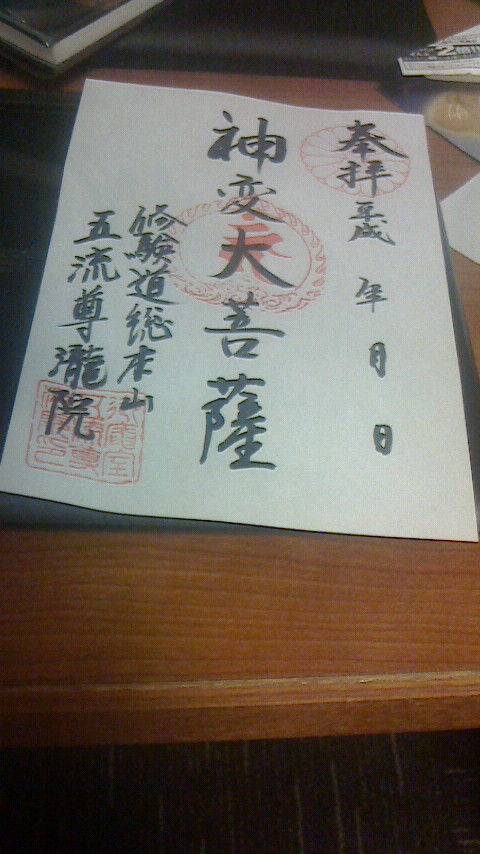 奉拝
平成 年 月 日
神変大菩薩
修験道総本山
五流尊瀧院